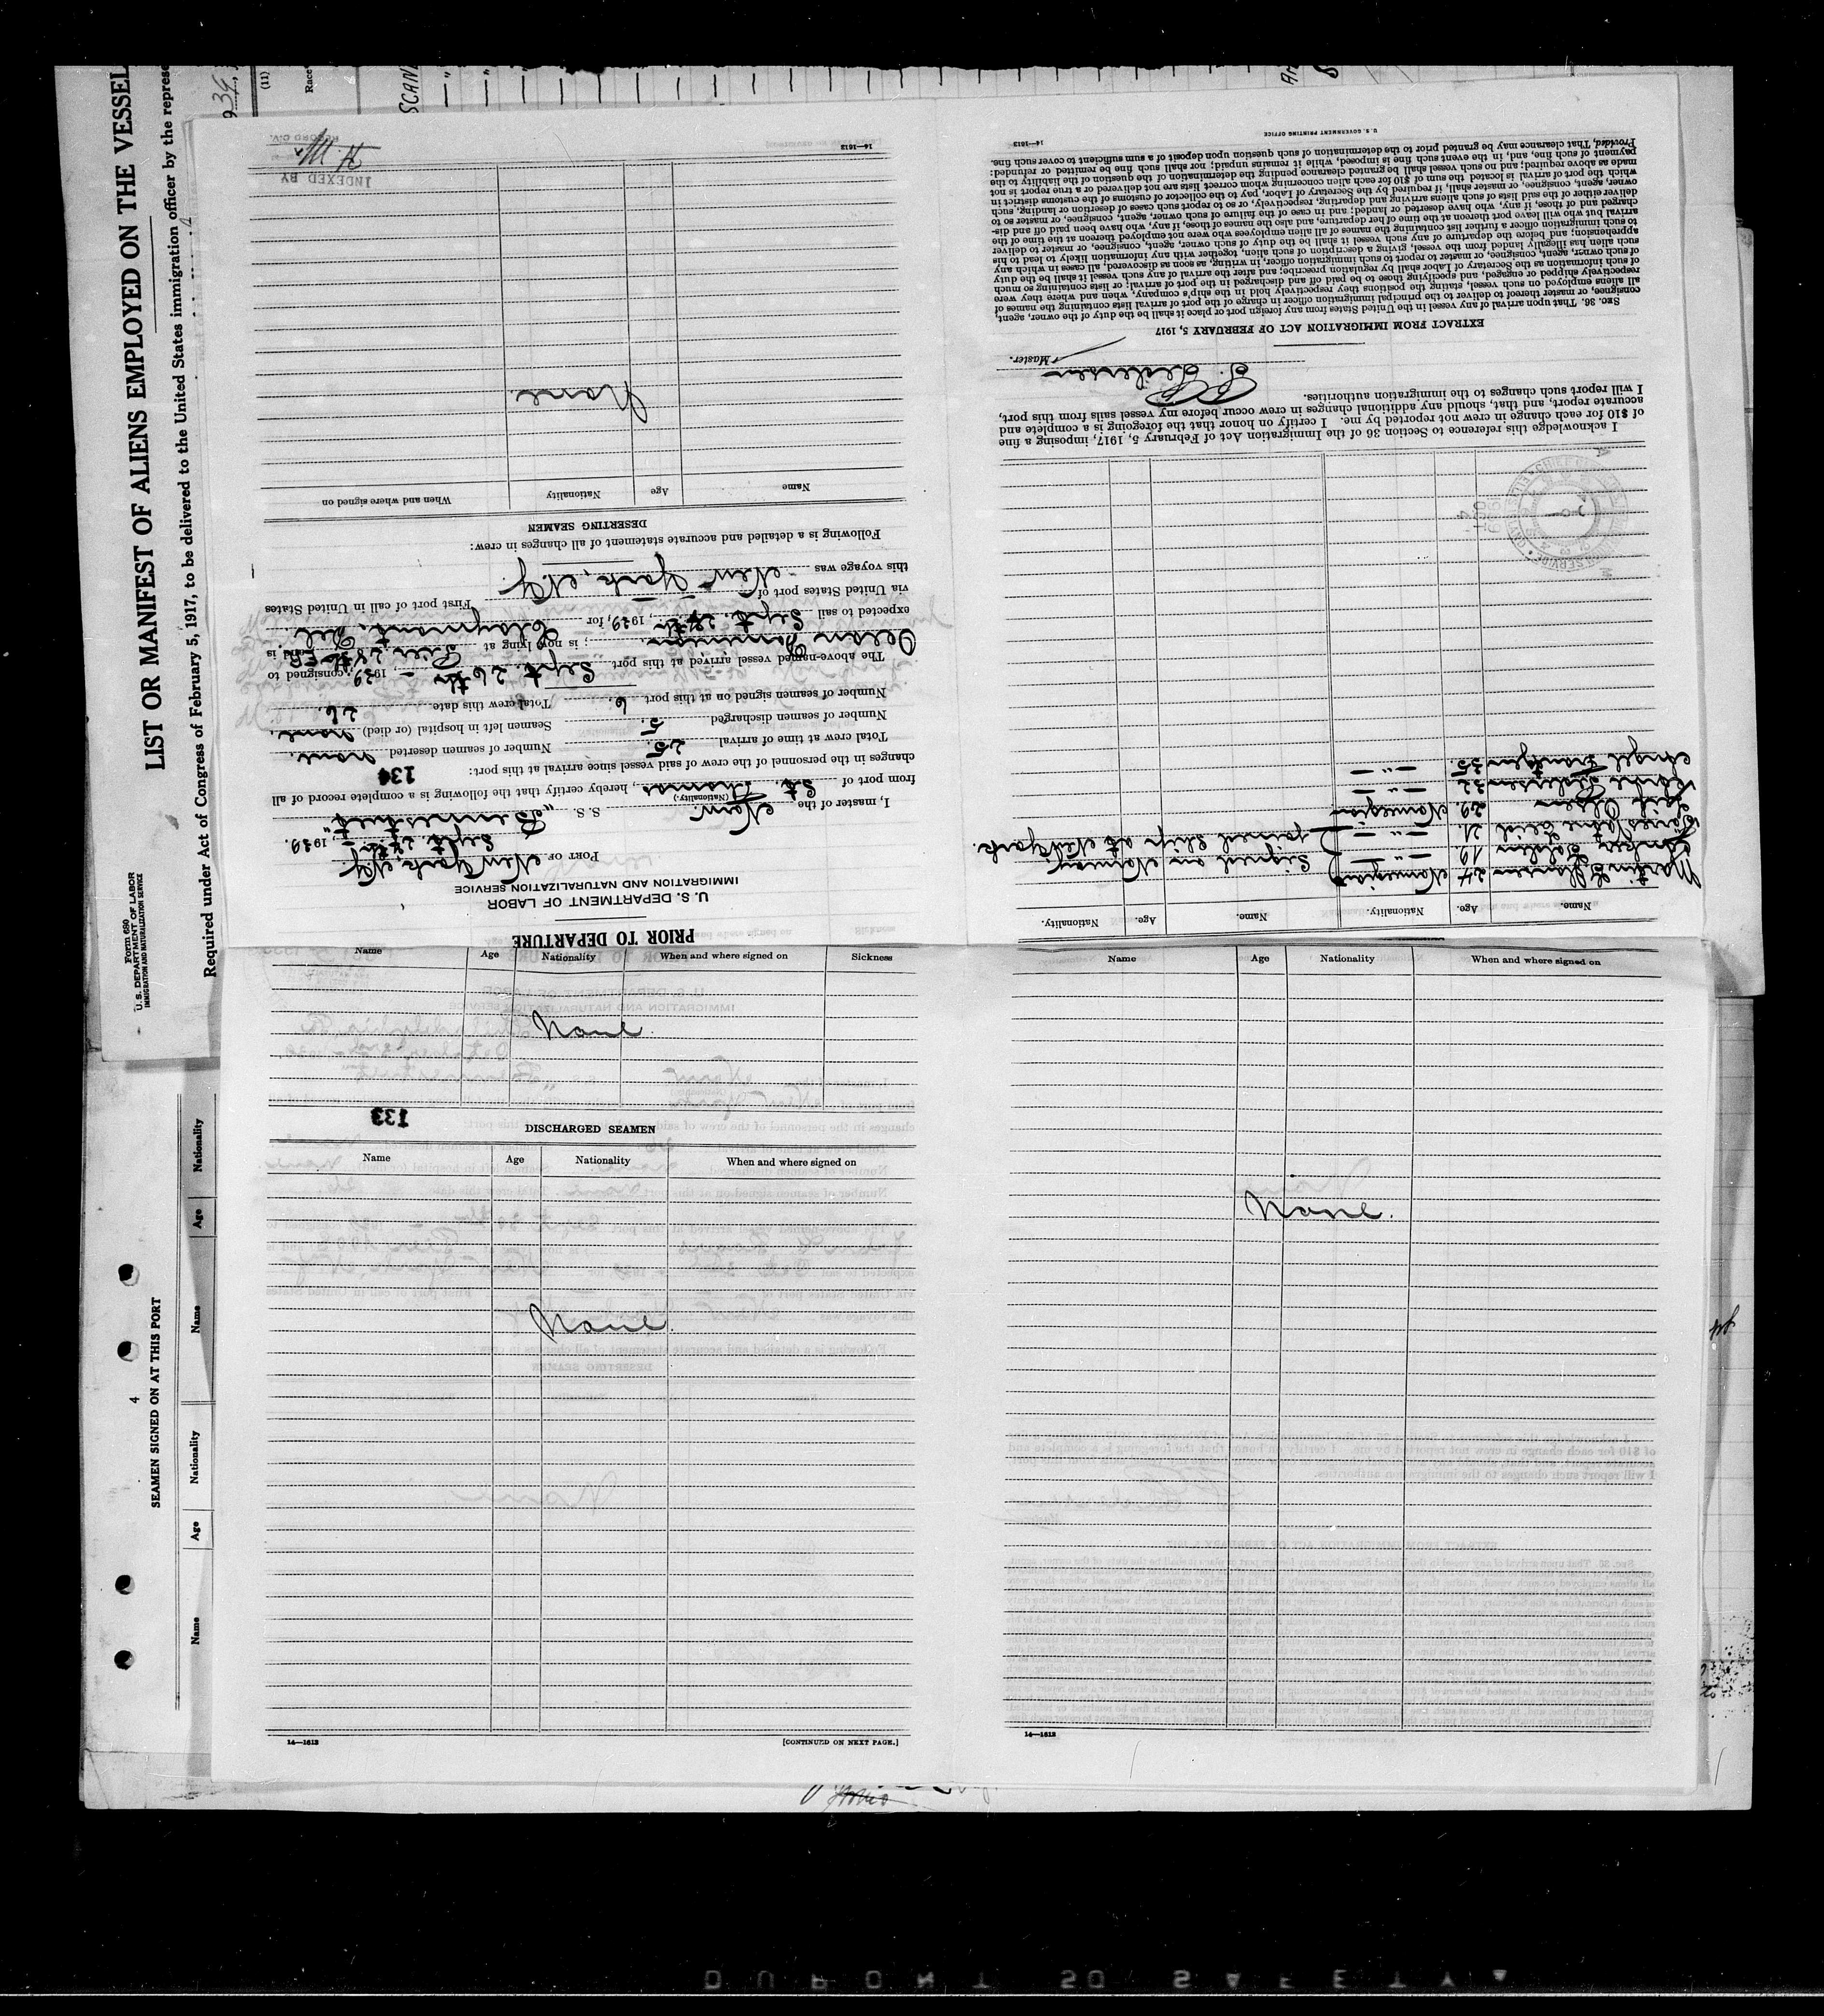 Form 680
U. S. DEPARTMENT OF LABOR
IMMIGRATION AND NATURALIZATION SERVICE
LIST OR MANIFEST OF ALIENS EMPLOYED ON THE VESSEL
Required under Act of Congress of February 5, 1917, to be delivered to the United States immigration officer by the represe
(11)
Race
SCAND
PRIOR TO DEPARTURE
U. S. DEPARTMENT OF LABOR
IMMIGRATION AND NATURALIZATION SERVICE
PORT OF New York, N.Y.
Sept. 27th, 1939.
I, master of the Norw. S. S. "Bennestvet",
(Nationality)
from port of St. Thomas, hereby certify that the following is a complete record of all
changes in the personnel of the crew of said vessel since arrival at this port: 134
Total crew at time of arrival 25. Number of seamen deserted None.
Number of seamen discharged 5. Seamen left in hospital (or died) None.
Number of seamen signed on at this port 6. Total crew this date 26.
The above-named vessel arrived at this port Sept. 26th – 1939, consigned to
Ocean Dominion; is now lying at Pier 24th and is
expected to sail Sept. 27th, 1939, for Claymont, Del.
via United States port of — First port of call in United States
this voyage was New York, N.Y.
Following is a detailed and accurate statement of all changes in crew:
DESERTING SEAMEN
Name Age Nationality When and where signed on
None.
14—1613
INDEXED BY
RECORD C.V.
Name. Age. Nationality. Name. Age. Nationality.
Martin Hansen 24 Norwegian } Signed in Norway
19. –"– joined ship at New York.
21. –"–
Leif Olsen 29. Norwegian
Kåre Pedersen 32. –"–
35. –"–
I acknowledge this reference to Section 36 of the Immigration Act of February 5, 1917, imposing a fine
of $10 for each change in crew not reported by me. I certify on honor that the foregoing is a complete and
accurate report, and that, should any additional changes in crew occur before my vessel sails from this port,
I will report such changes to the immigration authorities.
P. Pedersen
Master.
EXTRACT FROM IMMIGRATION ACT OF FEBRUARY 5, 1917
Sec. 36. That upon arrival of any vessel in the United States from any foreign port or place it shall be the duty of the owner, agent,
consignee, or master thereof to deliver to the principal immigration officer in charge of the port of arrival lists containing the names of
all aliens employed on such vessel, stating the positions they respectively hold in the ship's company, when and where they were
respectively shipped or engaged, and specifying those to be paid off and discharged in the port of arrival; or lists containing so much
of such information as the Secretary of Labor shall by regulation prescribe; and after the arrival of any such vessel it shall be the duty
of such owner, agent, consignee, or master to report to such immigration officer, in writing, as soon as discovered, all cases in which any
such alien has illegally landed from the vessel, giving a description of such alien, together with any information likely to lead to his
apprehension; and before the departure of any such vessel it shall be the duty of such owner, agent, consignee, or master to deliver
to such immigration officer a further list containing the names of all alien employees who were not employed thereon at the time of the
arrival but who will leave port thereon at the time of her departure, and also the names of those, if any, who have been paid off and dis-
charged and of those, if any, who have deserted or landed; and in case of the failure of such owner, agent, consignee, or master so to
deliver either of the said lists of such aliens arriving and departing, respectively, or so to report such cases of desertion or landing, such
owner, agent, consignee, or master shall, if required by the Secretary of Labor, pay to the collector of customs of the customs district in
which the port of arrival is located the sum of $10 for each alien concerning whom correct lists are not delivered or a true report is not
made as above required; and no such vessel shall be granted clearance pending the determination of the question of the liability to the
payment of such fine, and, in the event such fine is imposed, while it remains unpaid; nor shall such fine be remitted or refunded:
Provided, That clearance may be granted prior to the determination of such question upon deposit of a sum sufficient to cover such fine.
14—1613
U. S. GOVERNMENT PRINTING OFFICE
Name Age Nationality When and where signed on Sickness
None.
133
DISCHARGED SEAMEN
Name Age Nationality When and where signed on
None.
14—1613
[CONTINUED ON NEXT PAGE.]
Name Age Nationality When and where signed on
None.
14—1613
4
SEAMEN SIGNED ON AT THIS PORT
Name Age Nationality Name Age Nationality
DUPONT SD SAFETY